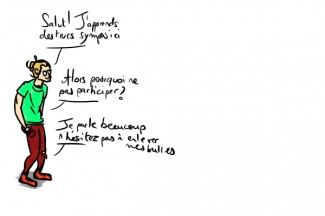 Salut! J'apprends
des trucs sympas ici
Alors pourquoi ne
pas participer?
Je parle beaucoup
n'hésitez pas à enlever
mes bulles